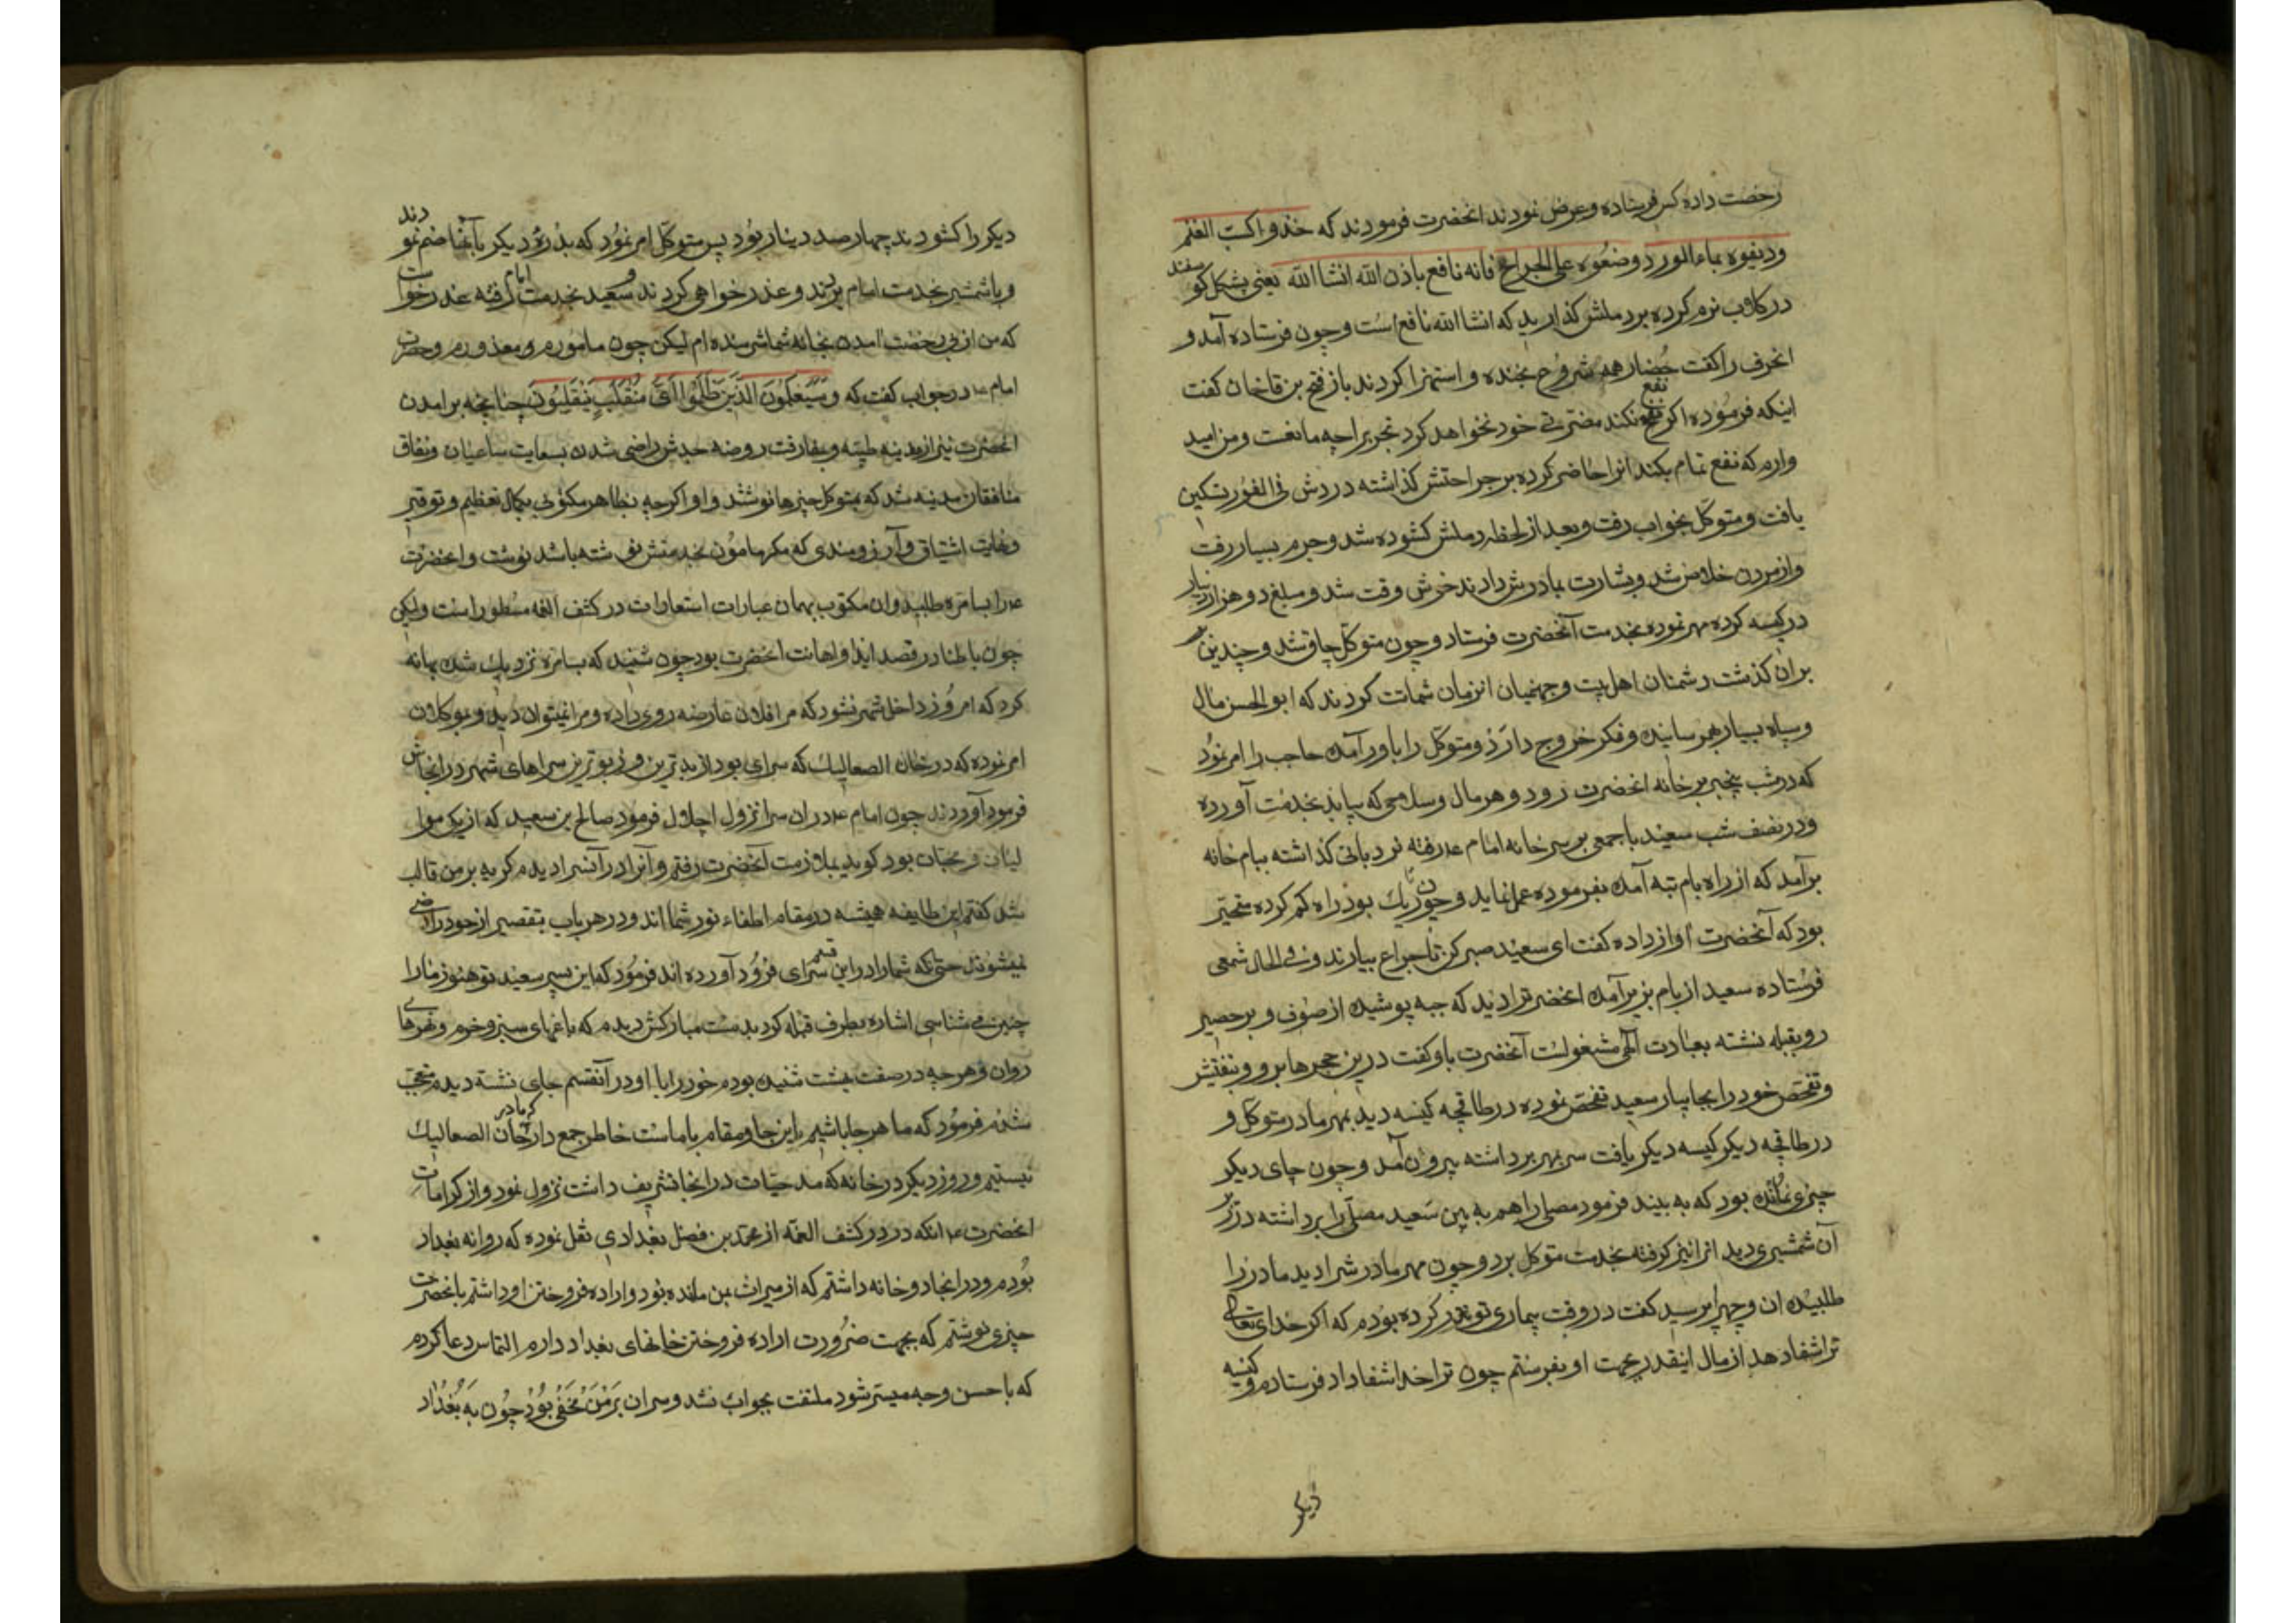 رخصت داده کس فرستاده وعرض نمودند انحضرت فرمودند که خذوا کسب الغنم
ودیفوه بماء الورد وضعوه علی الجراح فانه نافع باذن الله انشا الله یعنی پشکل کو سفند
در کلاب نرم کرده بر دملش کذارید که انشا الله نافع است وچون فرستاده آمد و
انحرف را کفت حضار همه شروع بخنده و استهزا کردند باز فتح بن قاخان کفت
اینکه فرموده اکر نفع نکند مضرتی خود نخواهد کرد تجربه را چه مانعست ومن امید
وارم که نفع تمام بکند انرا حاضر کرده بر جراحتش کذاشته دردش فی الفور تسکین
یافت و متوکل بخواب رفت وبعد از لحظه دملش کشوده شد وجرم بسیار رفت
واز مردن خلاص شد وبشارت بمادرش دادند خوش وقت شد و مبلغ دو هزار دینار
در کیسه کرده مهر نموده بخدمت آنحضرت فرستاد و چون متوکل چاق شد و چندین
بران کذشت دشمنان اهل بیت وجهنمیان انزمان شماتت کردند که ابو الحسن مال
وسپاه بسیار بهم رسانیده وفکر خروج دارد ومتوکل را باور آمده حاجب را امر نمود
که در شب بیخبر بر خانه انحضرت رود و هر مال وسلاحی که بیابد بخدمت آورده
ودر نصف شب سعید با جمعی بر سر خانه امام ع رفته نردبانی کذاشته ببام خانه
برآمد که از راه بام بته آمده بفرموده عمل نماید وچون تاریک بود راه کم کرده متحیر
بود که آنحضرت آواز داده کفت ای سعید صبر کن تا چراغ بیارند وفی الحال شمعی
فرستاده سعید از بام بزیر آمده انحضرترا دید که جبه پوشیده از صوف و بر حصیر
رو بقبله نشسته بعبادت الهی مشغولست آنحضرت باو کفت درین حجرها برو وتفتیش
وتفحص خود را بجا بیار سعید تفحص نموده در طاقچه کیسه دید بمهر مادر متوکل و
در طاقچه دیکر کیسه دیکر یافت سر بمهر برداشته بیرون آمد و چون جای دیکر
چیزی نمانده بود که به بیند فرمود مصلی را هم به بین سعید مصلی را برداشته در زیر
آن شمشیری دید انرا نیز کرفته بخدمت متوکل برد وچون مهر مادرش را دید مادر را
طلبیده ان وجه را پرسید کفت در وقت بیماری تو نذر کرده بودم که اکر خدای تعالی
ترا شفا دهد از مال اینقدر بجهت او بفرستم چون ترا خدا شفا داد فرستادم و کیسه
دیکر
دیکر را کشودند چهار صد دینار بود پس متوکل امر نمود که بدره دیکر بآنها ضم نمودند
وبا شمشیر بخدمت امام برند و عذر خواهی کردند و سعید بخدمت امام رفته عذر خواست
که من از بی رخصت امدن بخانه شما شرمنده ام لیکن چون مامورم و معذورم وحضرت
امام ع در جواب کفت که وسیعلمون الذین ظلموا ای منقلب ینقلبون چنانچه برامدن
انحضرت نیز از مدینه طیبه وبمفارقت روضه جدش راضی شدن بسعایت ساعیان ونفاق
منافقان مدینه شد که بمتوکل چیزها نوشتند و او اکرچه بظاهر مکتوبی بکمال تعظیم و توقیر
وغایت اشتیاق وآرزومندی که مکر مامون بخدمتش نوشته باشد نوشت وانحضرت
ع را بسامره طلبید وان مکتوب بهمان عبارات استعارات در کشف الغمه مسطور است ولیکن
چون باطنا در قصد ایذا واهانت انحضرت بود چون شنید که بسامره نزدیک شده بهانه
کرد که امروز داخل شهر نشود که مرا فلان عارضه روی داده ومرا نمیتوان دید وموکلان
امر نموده که در خان الصعالیک که سرای بود از بدترین وزبوترین سراهای شهر در انجاش
فرود آوردند چون امام ع در ان سرا نزول اجلال فرمود صالح بن سعید که از یک موا
لیان و محبان بود کوید بملازمت آنحضرت رفتم وآنرا در آنسرا دیدم کریه بر من غالب
شد کفتم این طایفه همیشه در مقام اطفاء نور شما اند ودر هر باب بتقصیر از خود راضی
نمیشوند حتی که شما را در این قسم سرای فرود آورده اند فرمود که این پسر سعید تو هنوز ما را
چنین می شناسی اشاره بطرف قبله کرد بدست مبارکش دیدم که باغهای سبز وخرم ونهرهای
روان وهرچه در صفت بهشت شنیده بودم خود را با او در آنقسم جای نشسته دیدم متعجب
شدم فرمود که ما هر جا باشیم این جا ومقام با ماست خاطر جمع دار که ما در خان الصعالیک
نیستیم وروز دیکر در خانه که مدت حیات در انجا تشریف داشت نزول نمود و از کرامات
انحضرت ع انکه در در کشف الغمه از محمد بن فضل بغدادی نقل نموده که روانه بغداد
بودم ودر انجا دو خانه داشتم که از میراث بمن مانده بود واراده فروختن او داشتم بانحضرت
چیزی نوشتم که بجهت ضرورت اراده فروختن خانهای بغداد دارم التماس دعا کردم
که باحسن وجه میسر شود ملتفت بجواب نشد وسر ان بر من مخفی بود چون به بغداد